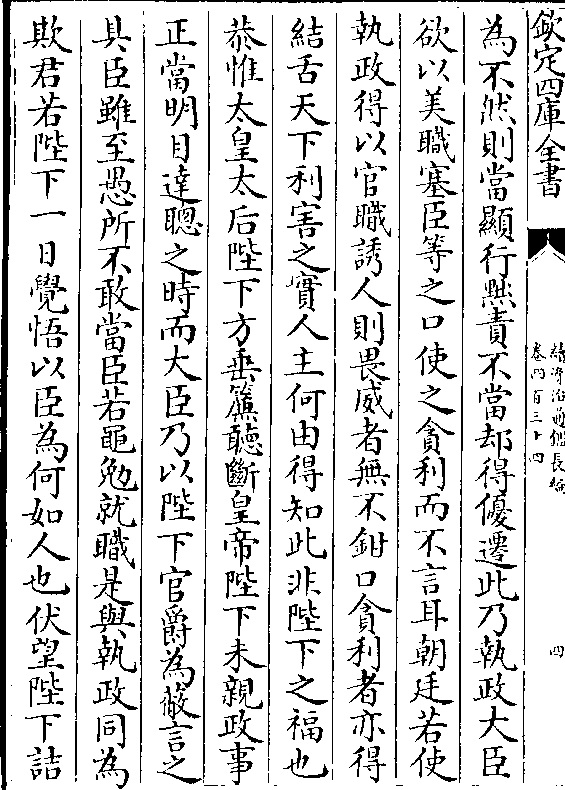 欽定四庫全書
續資治通鑑長編
卷四百三十四
四
為不然則當顯行黜責不當却得優遷此乃執政大臣
欲以美職塞臣等之口使之貪利而不言耳朝廷若使
執政得以官職誘人則畏威者無不鉗口貪利者亦得
結舌天下利害之實人主何由得知此非陛下之福也
恭惟太皇太后陛下方垂簾聽斷皇帝陛下未親政事
正當明目達聰之時而大臣乃以陛下官爵為蔽言之
具臣雖至愚所不敢當臣若黽勉就職是與執政同為
欺君若陛下一日覺悟以臣為何如人也伏望陛下詰